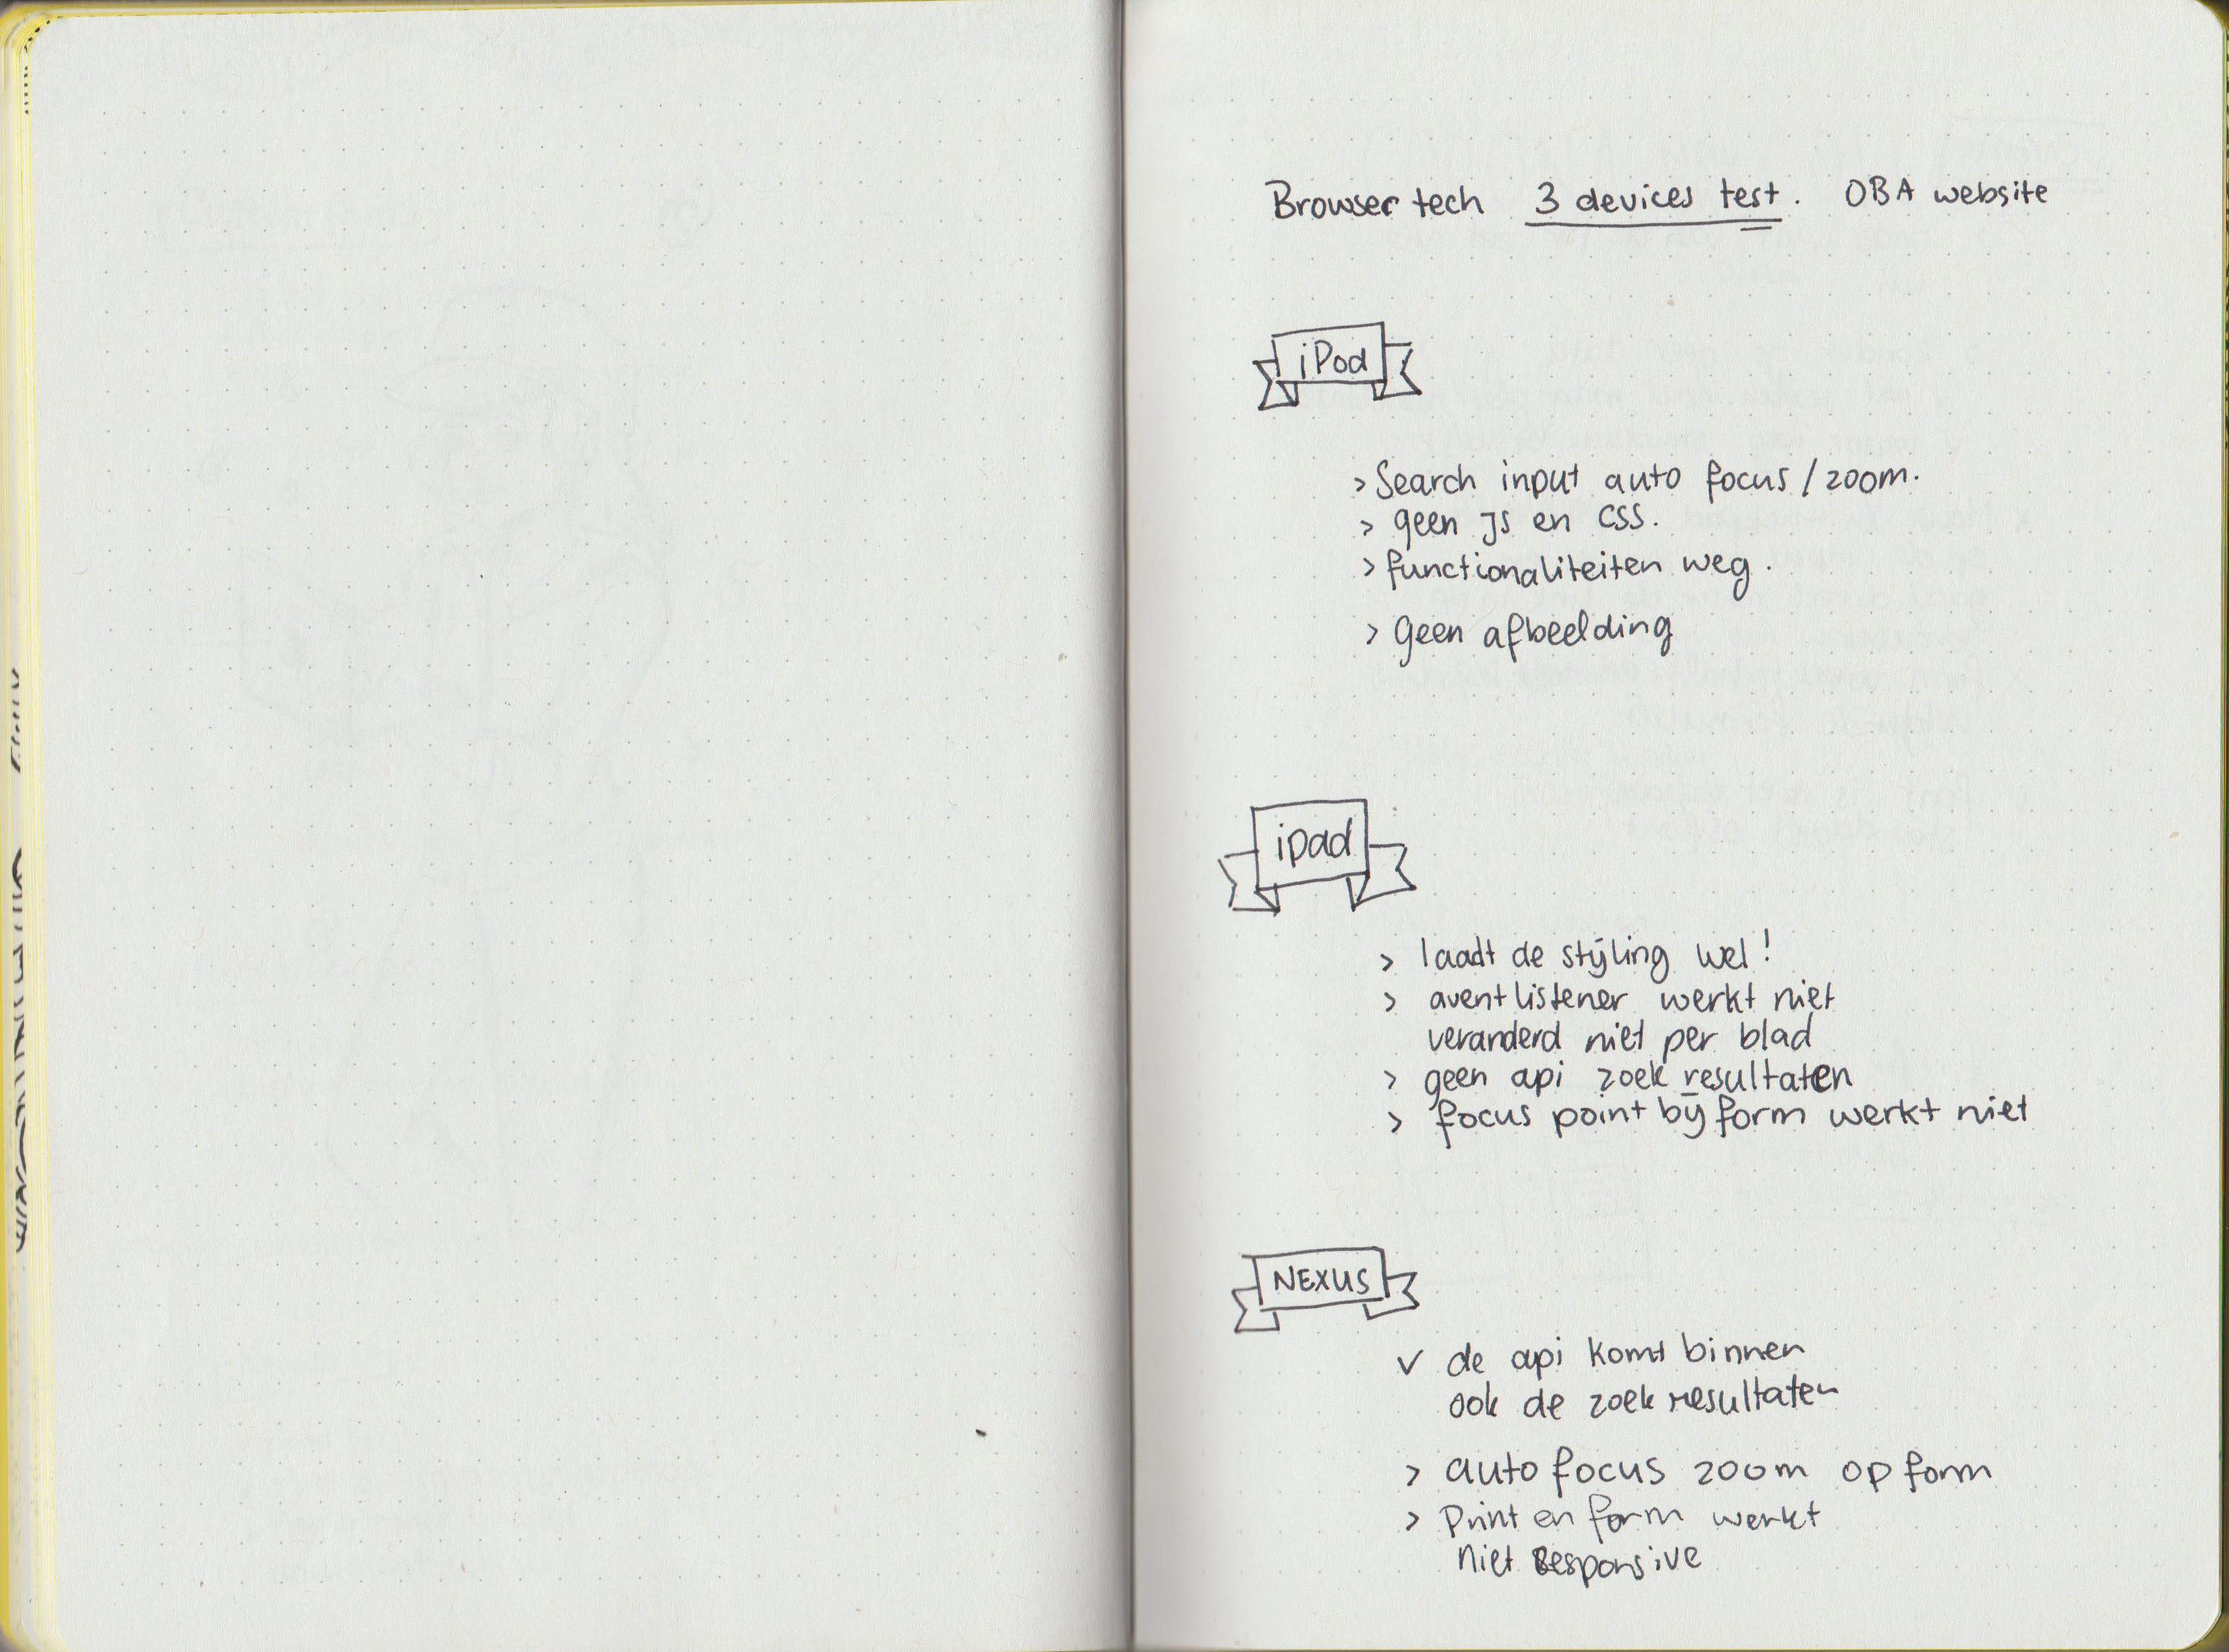 Browser tech 3 devices test. OBA website
iPod
> Search input auto focus / zoom.
> geen JS en CSS.
> functionaliteiten weg.
> Geen afbeelding
ipad
> laadt de stijling wel!
> aventlistener werkt niet
veranderd niet per blad
> geen api zoek resultaten
> focus point bij form werkt niet
NEXUS
v de api komt binnen
ook de zoek resultaten
> auto focus zoom op form
> Print en form werkt
niet responsive